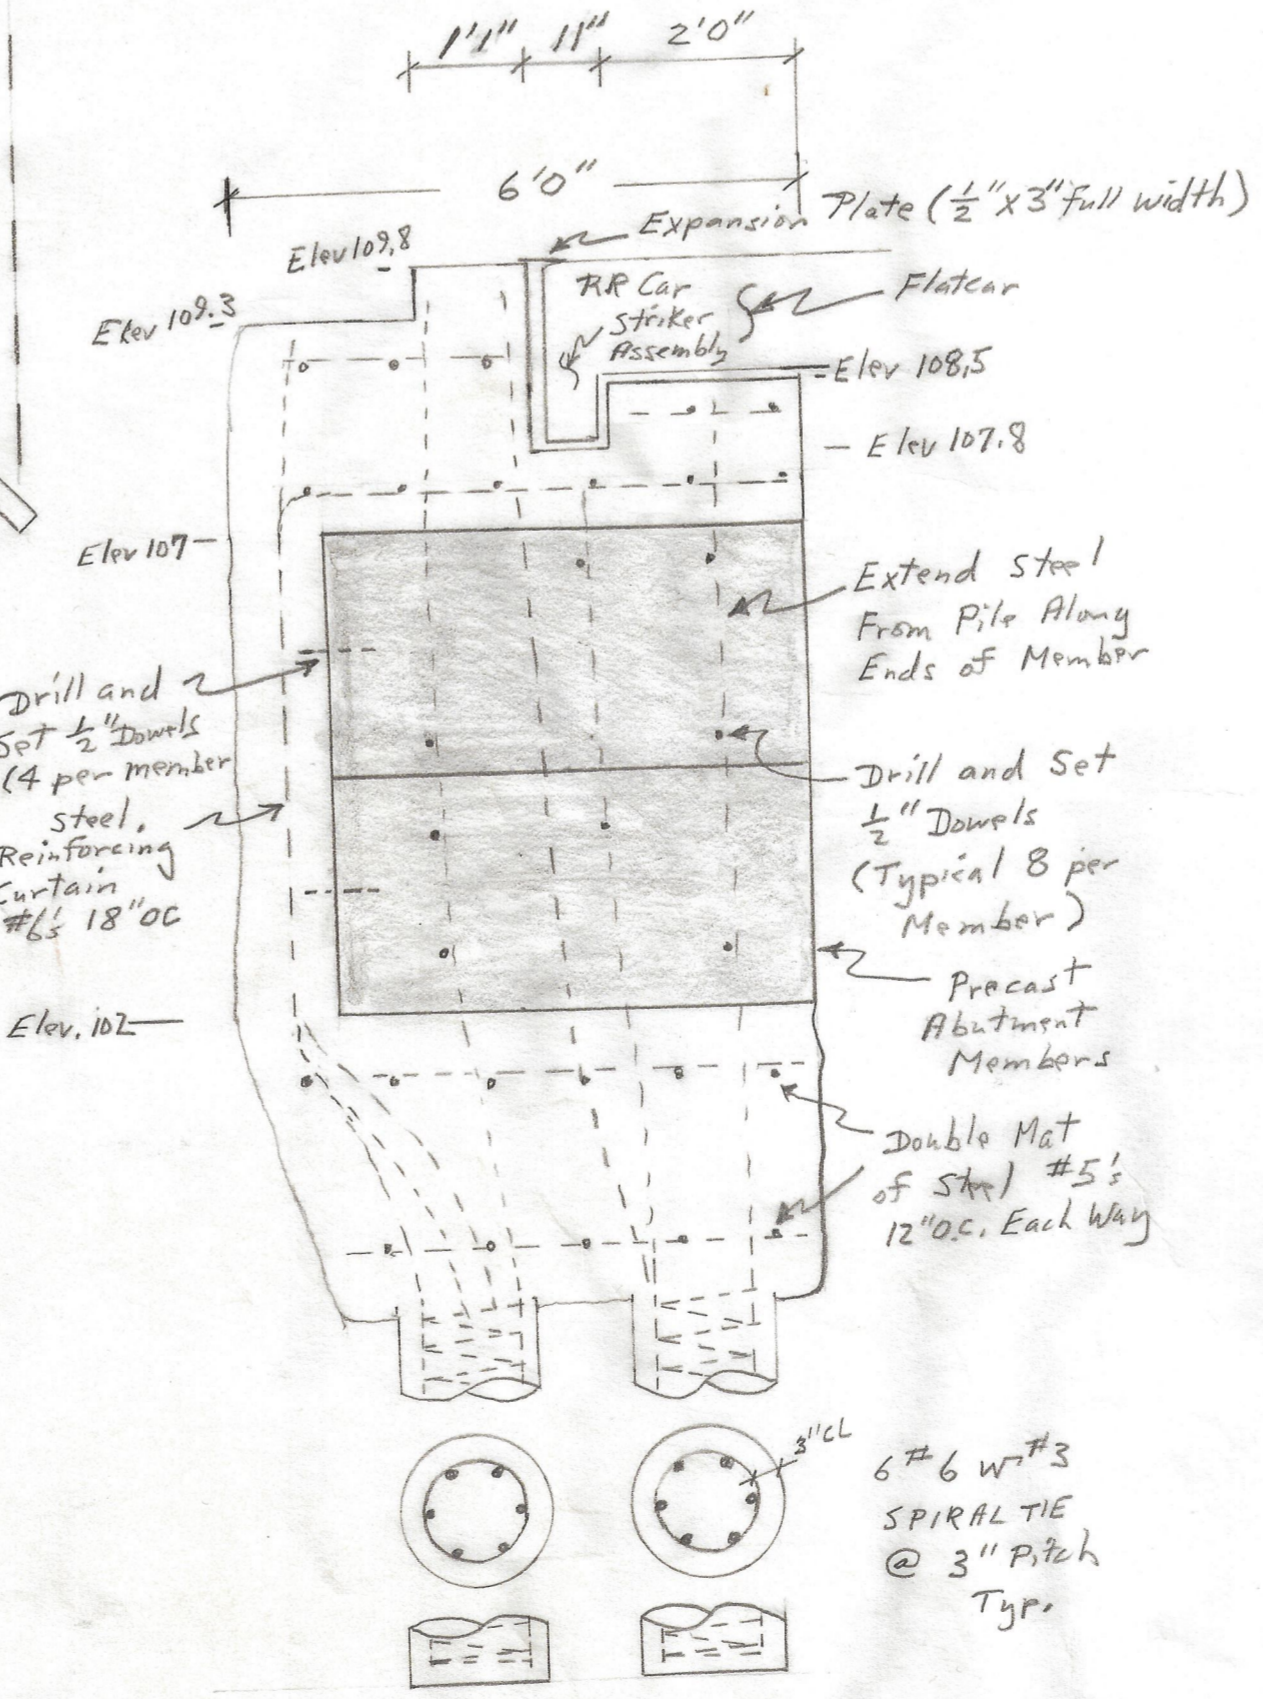 1'1" 11" 2'0"
6'0"
Expansion Plate (1/2" x 3" full width)
Elev 109.8
Elev 109.3
RR Car
Striker
Assembly
Flatcar
Elev 108.5
Elev 107.8
Elev 107
Extend Steel
From Pile Along
Ends of Member
Drill and
Set 1/2" Dowels
(4 per member
Steel.
Reinforcing
Curtain
#6's 18" OC
Drill and Set
1/2" Dowels
(Typical 8 per
Member)
Precast
Abutment
Members
Elev. 102
Double Mat
of Steel #5's
12" O.C. Each Way
3" CL
6 #6 W #3
SPIRAL TIE
@ 3" Pitch
Typ.